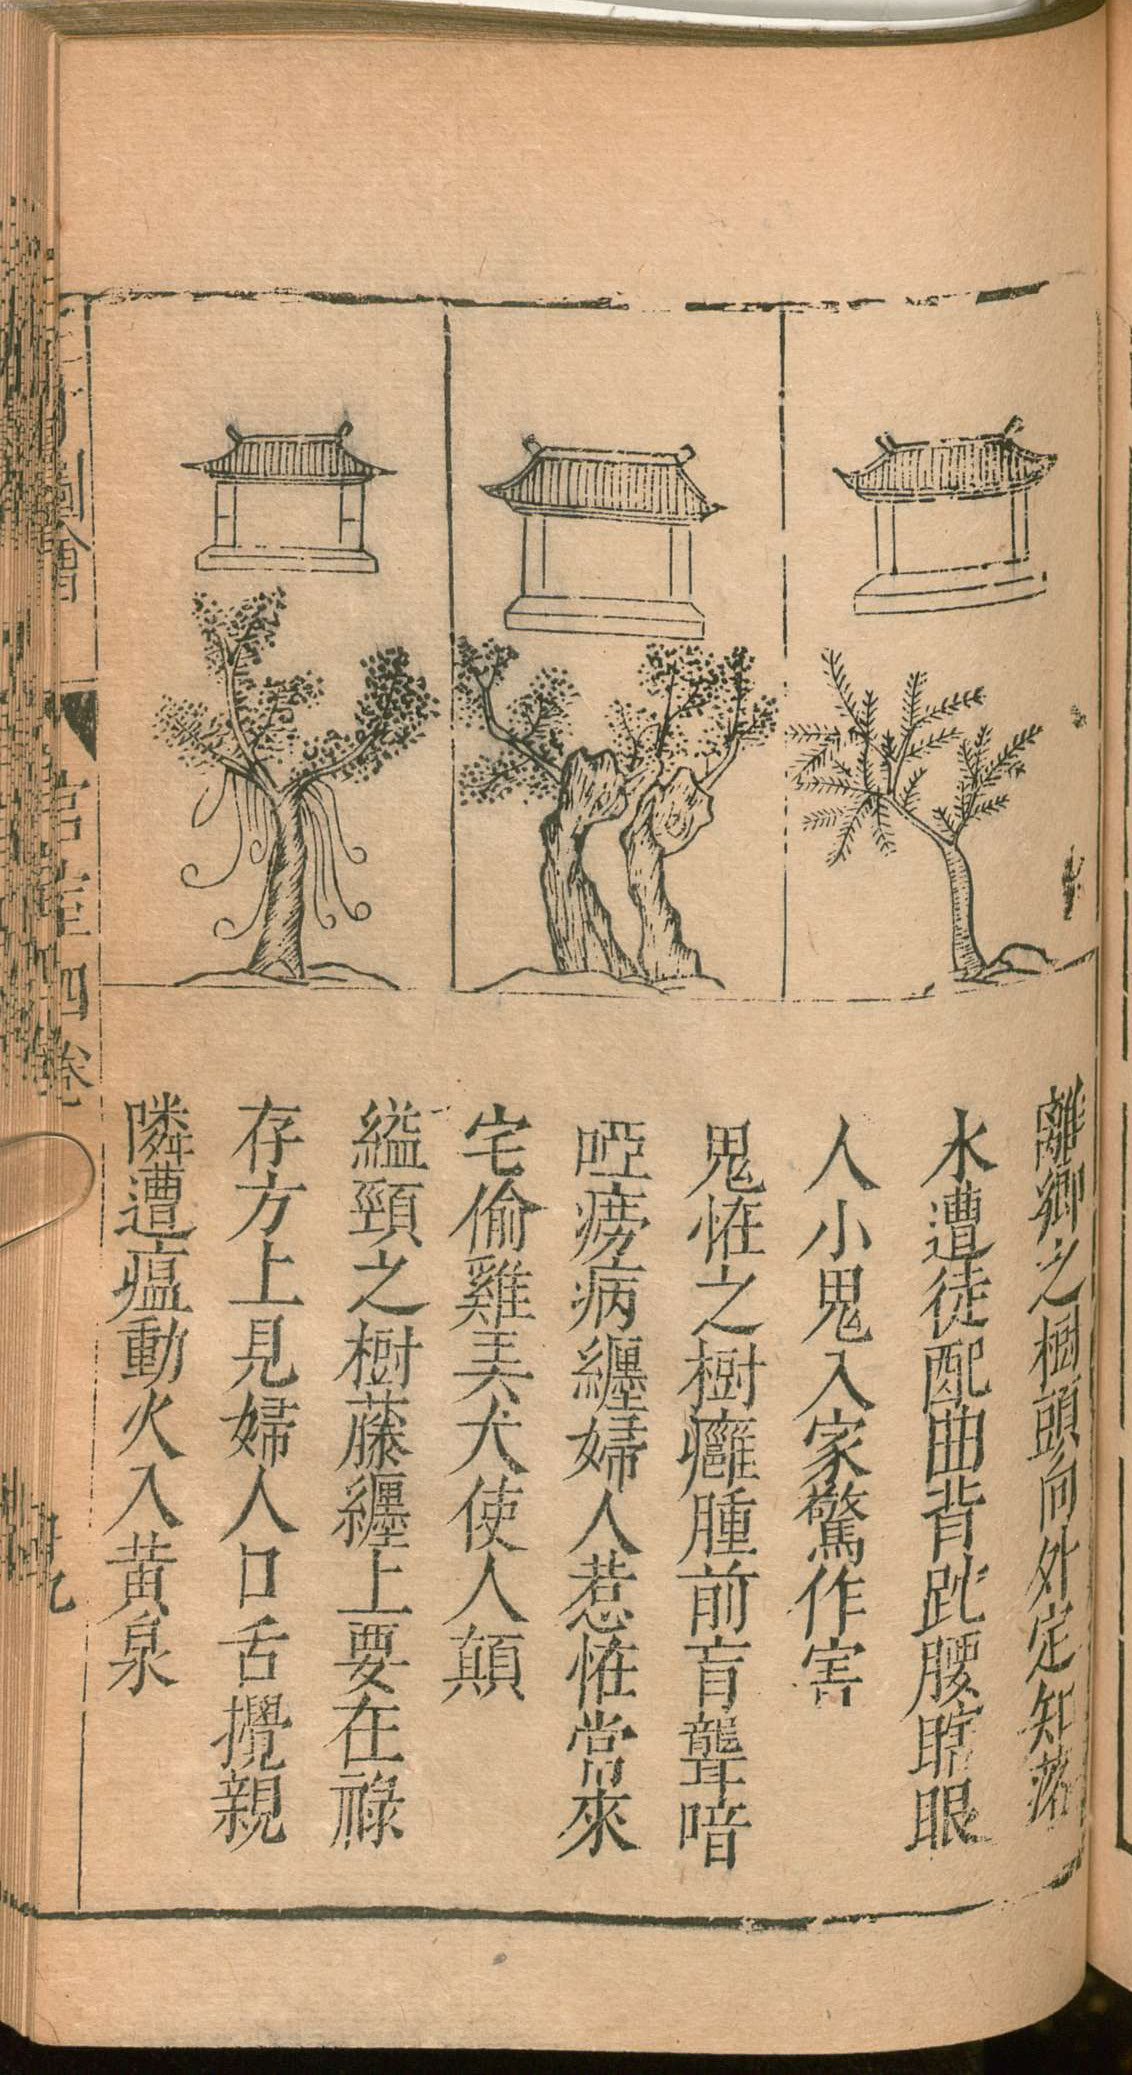 離鄉之樹頭向外定知落
水遭徒配曲背跎腰瞎眼
人小鬼入家驚作害
鬼怪之樹癰腫前盲聾喑
啞癆病纏婦人惹怪常來
宅偷雞弄犬使人顛
縊頸之樹藤纏上要在祿
存方上見婦人口舌攪親
隣遭瘟動火入黃泉
宮室四卷